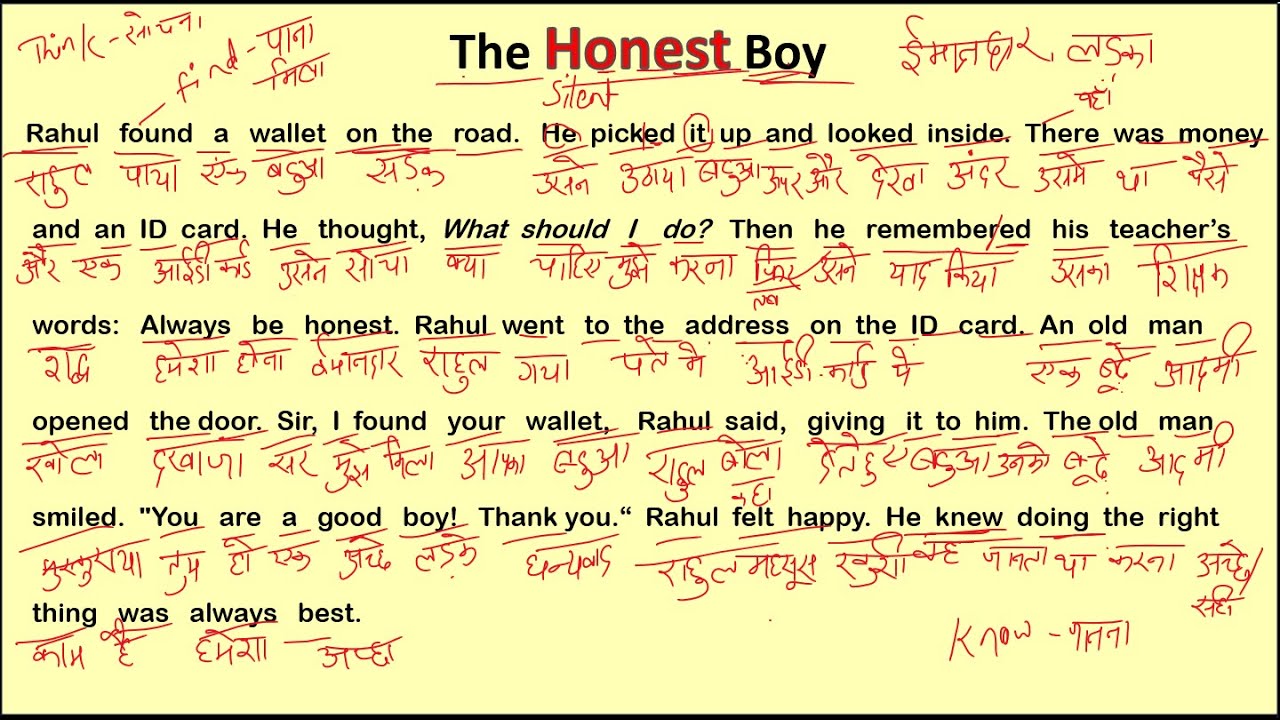 Think - सोचना
find - पाना
मिला
The Honest Boy
ईमानदार लड़का
Silent
वहाँ
Rahul found a wallet on the road. He picked it up and looked inside. There was money
राहुल पाया एक बटुआ सड़क उसने उठाया बटुआ ऊपर और देखा अंदर उसमे था पैसे
and an ID card. He thought, What should I do? Then he remembered his teacher's
और एक आईडी कार्ड उसने सोचा क्या चाहिए मुझे करना फिर उसने याद किया उसका शिक्षक
words: Always be honest. Rahul went to the address on the ID card. An old man
शब्द हमेशा होना ईमानदार राहुल गया पते मे आईडी कार्ड पे एक बूढ़े आदमी
opened the door. Sir, I found your wallet, Rahul said, giving it to him. The old man
खोला दरवाजा सर मुझे मिला आपका बटुआ राहुल बोला देते हुए बटुआ उनको बूढ़े आदमी
कहा
smiled. "You are a good boy! Thank you.“ Rahul felt happy. He knew doing the right
मुस्कुराया तुम हो एक अच्छे लड़के धन्यवाद राहुल महसूस खुशी वह जानता था करना अच्छे/
सही
thing was always best.
काम है हमेशा अच्छा
Know - जानना